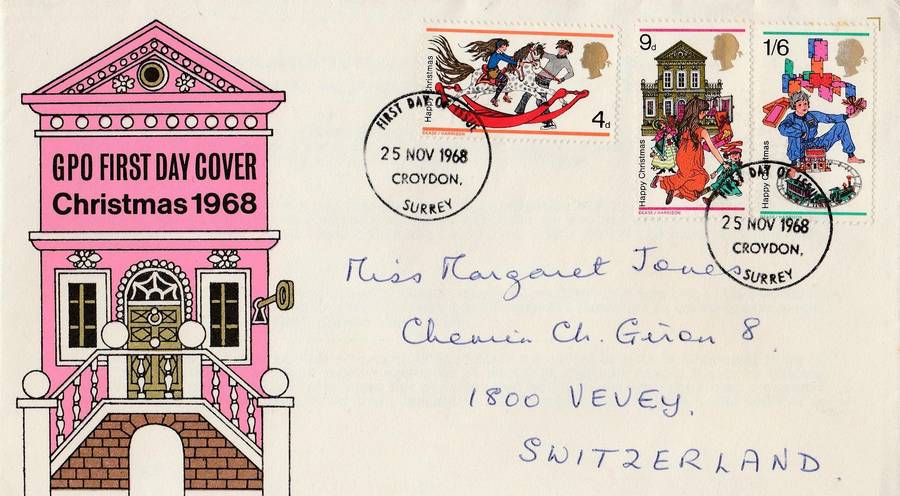 GPO FIRST DAY COVER
Christmas 1968
Happy Christmas
4d
BAXE / HARRISON
9d
Happy Christmas
BAXE / HARRISON
1/6
Happy Christmas
FIRST DAY OF ISSUE
25 NOV 1968
CROYDON,
SURREY
FIRST DAY OF ISSUE
25 NOV 1968
CROYDON,
SURREY
Miss Margaret Jones
Chemin Ch. Giron 8.
1800 VEVEY.
SWITZERLAND